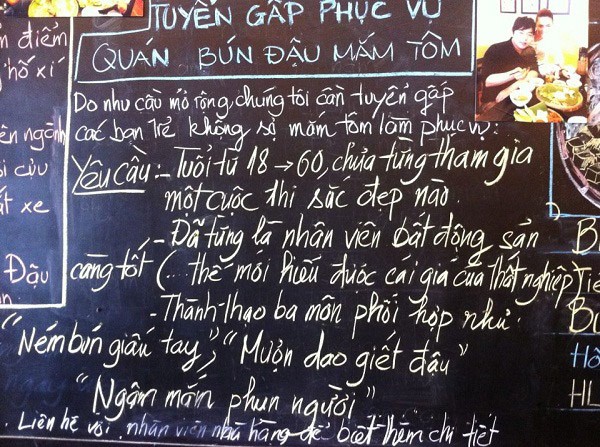 TUYỂN GẤP PHỤC VỤ
QUÁN BÚN ĐẬU MẮM TÔM
Do nhu cầu mở rộng, chúng tôi cần tuyển gấp
các bạn trẻ không sợ mắm tôm làm phục vụ:
Yêu Cầu: - Tuổi từ 18 → 60, chưa từng tham gia
một cuộc thi sắc đẹp nào.
- Đã từng là nhân viên bất động sản
càng tốt (... thế mới hiểu được cái giá của thất nghiệp
- Thành thạo ba môn phối hợp như:
"Ném bún giấu tay", "Mượn dao giết đậu"
"Ngậm mắm phun người"
Liên hệ với nhân viên nhà hàng để biết thêm chi tiết
điểm
hố xí
ngành
cửu
xe
Đậu
B
B
Hồ
HL